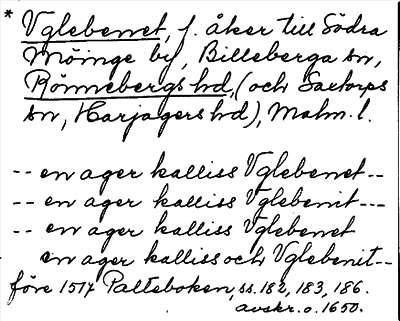 * Vglebenet, f. åker till Södra
Möinge by, Billeberga sn,
Rönnebergs hd, (och Saxtorps
sn, Harjagers hd), Malm. l.
-- en ager kalliss Vglebenet--
-- en ager kalliss Vglebenit---
-- en ager kalliss Vglebenet
en ager kalliss och Vglebenit--
före 1517 Palteboken, ss. 182, 183, 186.
avskr. o. 1650.